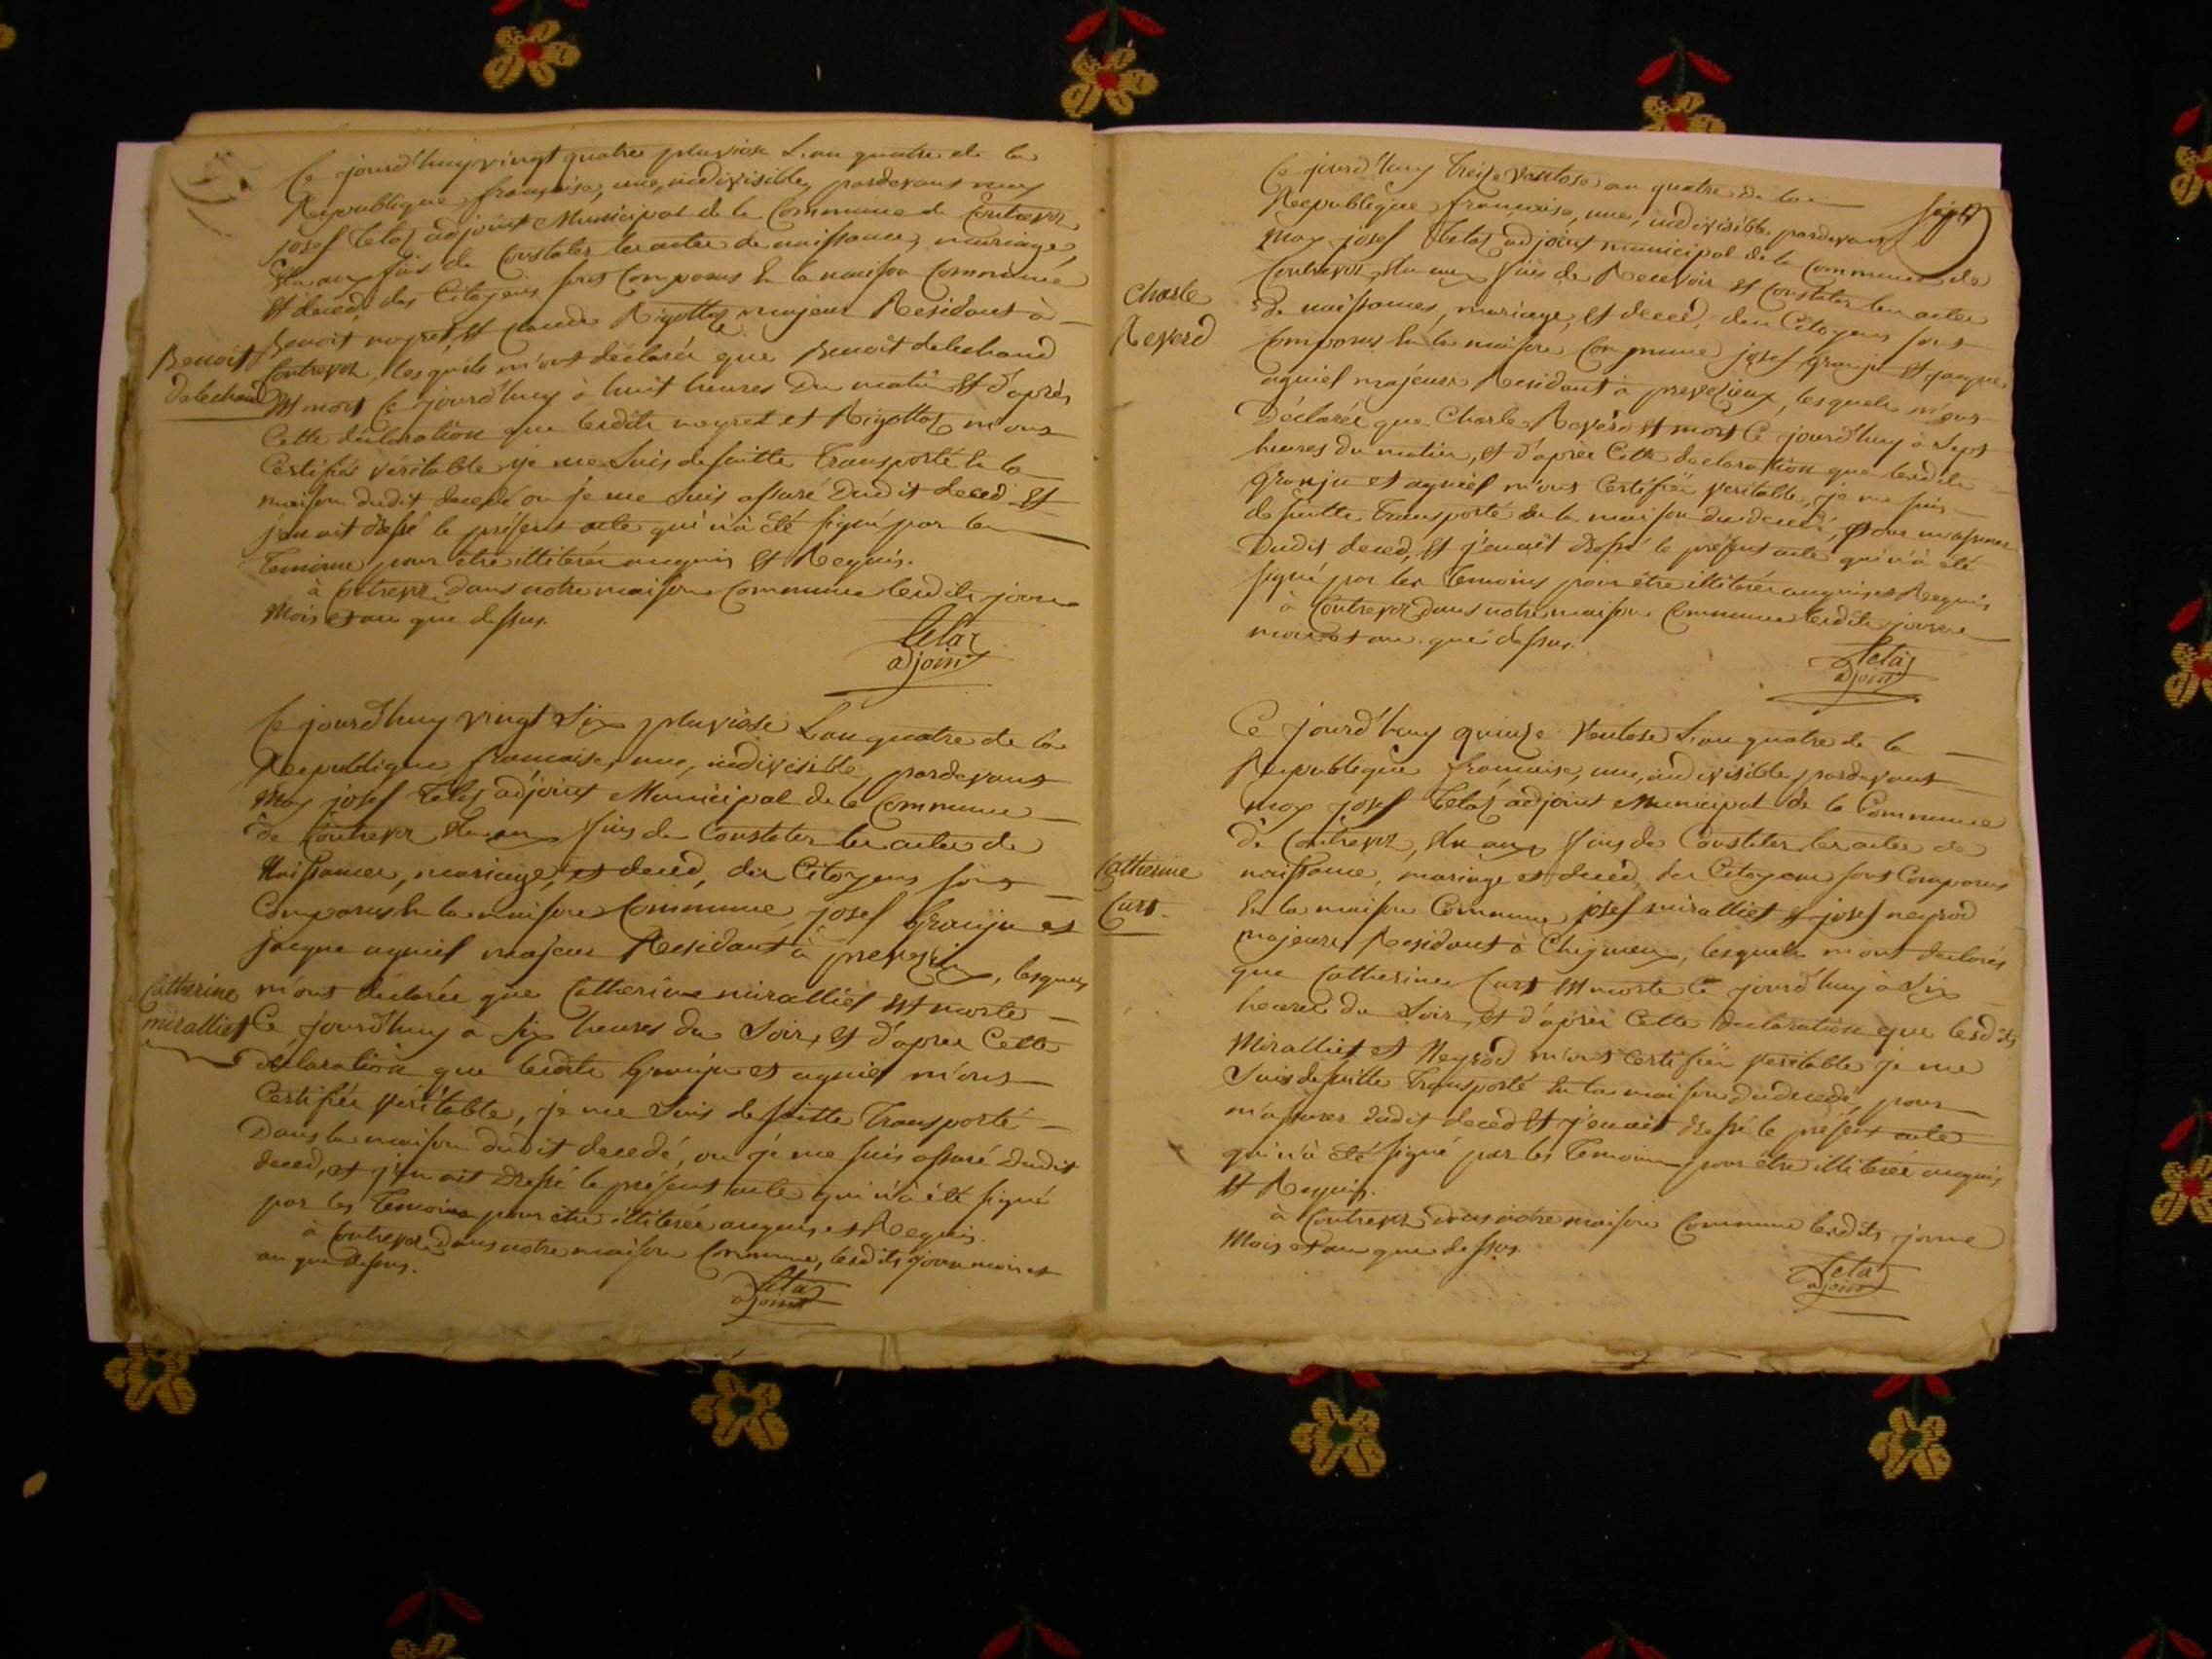 Ce jourd'huy vingt quatre pluviose L'an quatre de la
Republique française, une, indivisible, pardevant moy
josef Letaz adjoint Municipal de la Commune de Contrevoz
Elu aux fins de Constater les actes de naissance, mariage,
Et deced, des Citoyens sont Comparus En la maison Commune
Benoit neyret, Et Claude Rigottaz majeur Residant à
Contrevoz, lesquels m'ont déclarée que Benoit dalechand
Benoit
Dalechand
Est mort Ce jourd'huy à huit heures Du matin Et d'après
Cette déclaration que lesdits neyret et Rigottaz m'ont
Certifiée véritable je me Suis de suitte Transporté En la
maison dudit decedé ou je me suis assuré Dudit deced Et
j'en ait dressé le présent acte qui n'à été signé par les
Temoins pour être illiterée enquis Et Requis.
à Contrevoz dans notre maison Commune lesdits jour
Mois et an que dessus.
Letaz
adjoint
Ce jourd'huy vingt Six pluviose L'an quatre de la
Republique francaise, une, indivisible, pardevant
Moy josef Letaz adjoint Municipal de la Commune
de Contrevoz Elu aux fins de Constater les actes de
Naissances, mariage, et deced, des Citoyens sont
Comparus En la maison Commune josef Granju et
jacque agniel majeur Residant à prevezieux, lesquels
Catherine
miralliet
m'ont déclarée que Catherine miralliet Est morte
Ce jourd'huy à Six heures du Soir, Et d'après Cette
déclaration que lesdits Granju et agniel m'ont
Certifiée véritable, je me Suis de suitte Transporté
Dans la maison dudit decedé, ou je me suis assuré dudit
deced, et j'en ait Dressé le présent acte qui n'à été signé
par les Temoins pour être illiterée enquis et Requis.
à Contrevoz Dans notre maison Commune, lesdits jour mois et
an que dessus.
Letaz
adjoint
Ce jourd'huy Treize Ventose an quatre De la
Republique française, une, indivisible pardevant
Moy josef Letaz adjoint municipal de la Commune de
Contrevoz, Elu aux fins de Recevoir et Constater les actes
De naissances, mariage, et deced, des Citoyens sont
Charle
Reverd
Comparus En la maison Commune josef Granju Et jacque
agniel majeurs Residant à prevezieux, lesquels m'ont
Déclarée que Charle Reverd Est mort Ce jourd'huy à Sept
heures du matin, Et d'après Cette declaration que lesdits
Granju et agniel m'ont Certifiée veritable, je me suis
de suitte Transporté En la maison du decedé, pour m'assurer
Dudit deced, Et j'en ait dressé le présent acte qui n'à été
signé par les Temoins pour être illiterée enquis et Requis
à Contrevoz dans notre maison Commune lesdits jour
mois et an que dessus.
Letaz
adjoint
Ce jourd'huy quinze Ventose L'an quatre de la
Republique francaise, une, indivisible, pardevant
moy josef Letaz adjoint Municipal de la Commune
de Contrevoz, Elu aux fins de Constater les actes de
Catherine
Curt.
naissance, mariage et deced, des Citoyens sont Comparus
En la maison Commune josef miralliet Et josef neyrod
majeurs Residant à Chigneux, lesquels m'ont declarée
que Catherine Curt Est morte Ce jourd'huy à Six
heures du Soir, Et d'après Cette declaration que lesdits
Miralliet et Neyrod m'ont Certifiée veritable je me
Suis de suitte Transporté En la maison du decedé pour
m'assurer dudit deced Et j'en ait dressé le présent acte
qui n'à été signé par les Temoins pour être illiterée enquis
Et Requis.
à Contrevoz dans notre maison Commune lesdits jour
Mois et an que dessus.
Letaz
adjoint